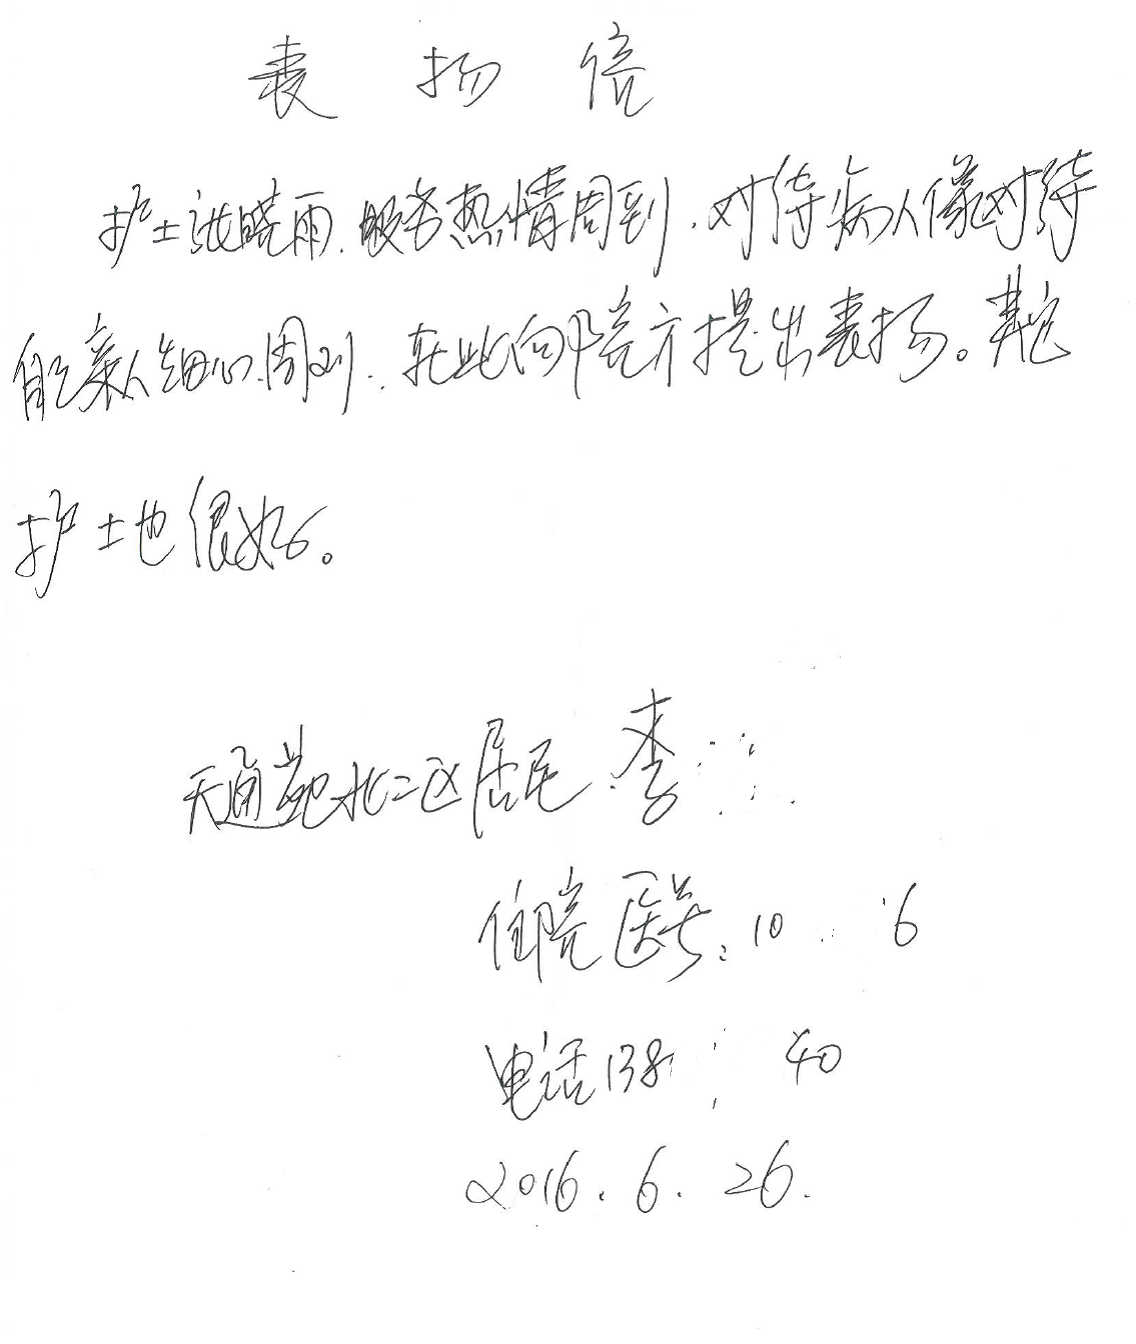 表扬信
护士张晓雨.服务热情周到.对待病人像对待
自己亲人细心.周到.在此向院方提出表扬。其它
护士也很好。
天通苑北二区居民 李
住院医号:10 6
电话138 40
2016.6.26.